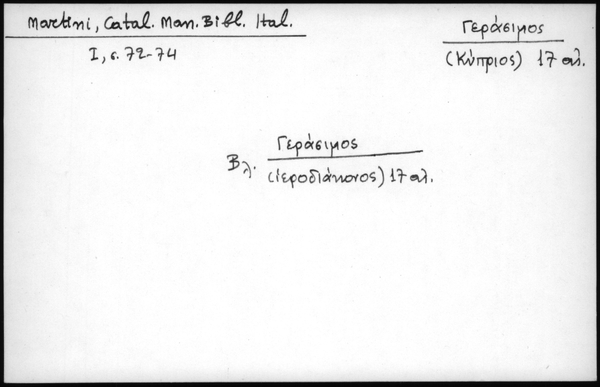 Martini, Catal. Man. Bibl. Ital.
I, σ. 72-74
Γεράσιμος
(Κύπριος) 17 αι.
Βλ. Γεράσιμος
(ἱεροδιάκονος) 17 αι.